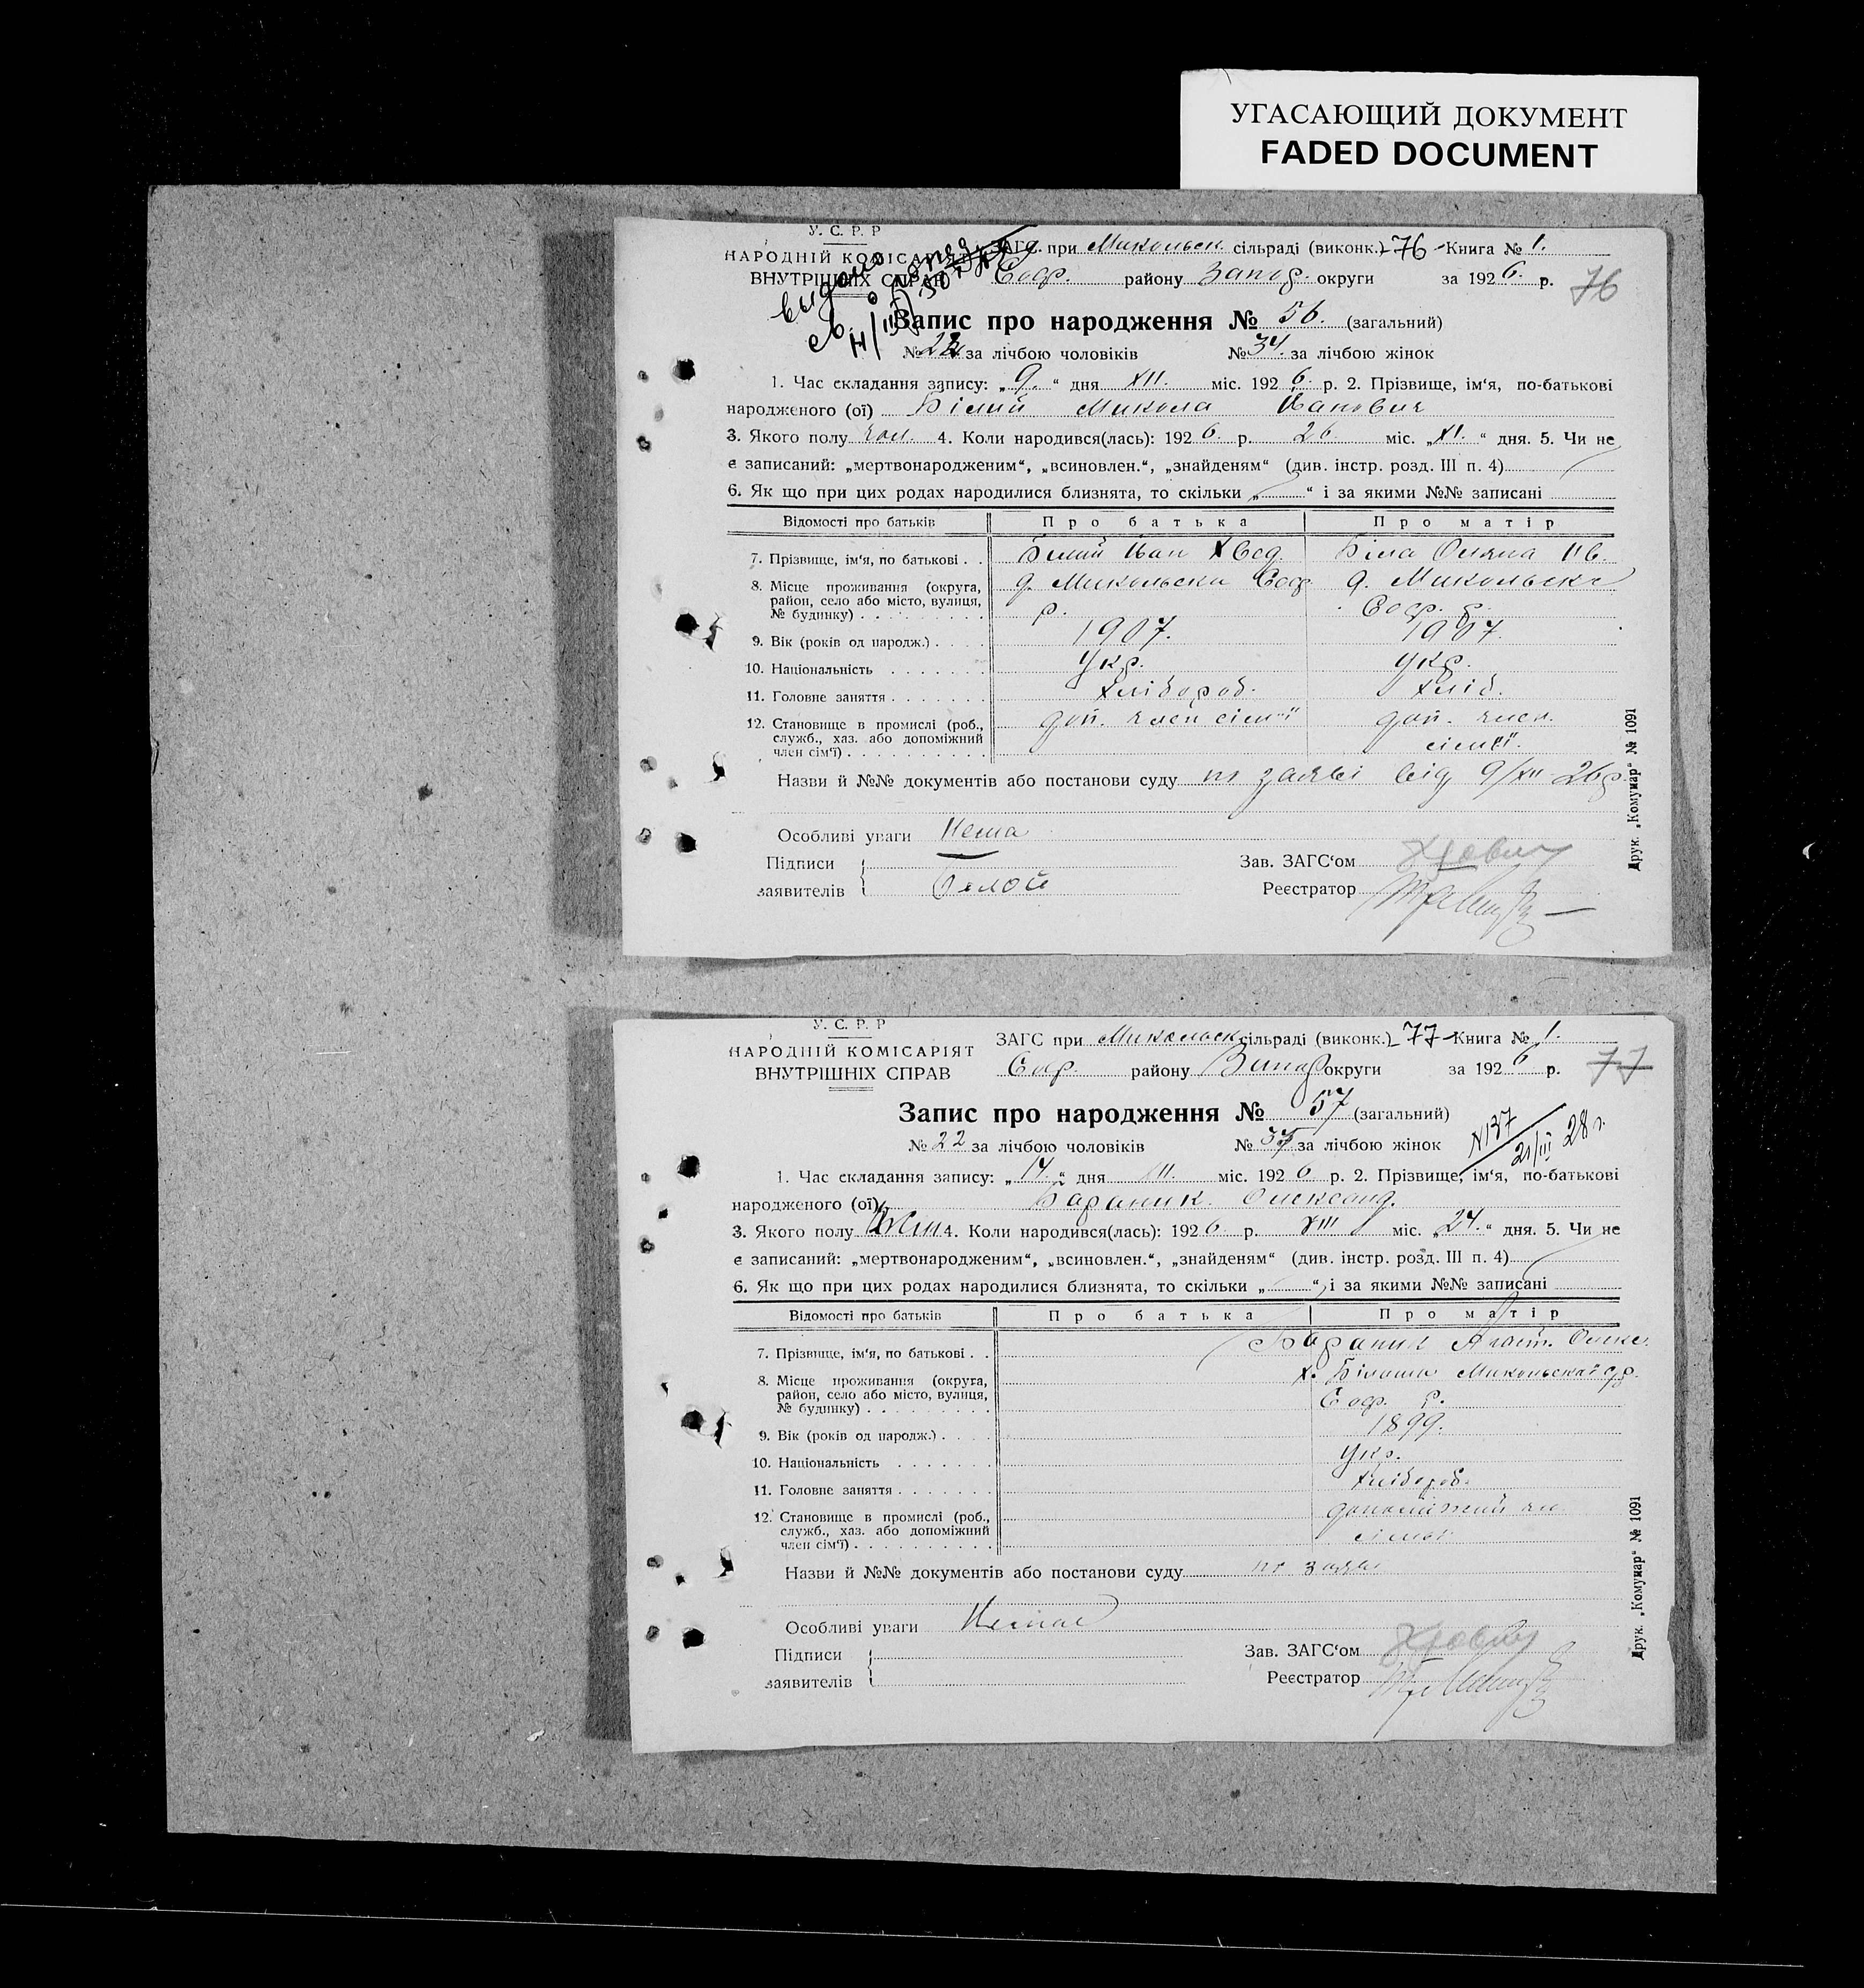 УГАСАЮЩИЙ ДОКУМЕНТ
FADED DOCUMENT
У. С. Р. Р
НАРОДНІЙ КОМІСАРІЯТ
ВНУТРІШНІХ СПРАВ
видано
ЗАГС при Микольск. сільраді (виконк.) -76- Книга № 1.
Соф. района Запор. округи за 1926. р.
76
Запис про народження № 56. (загальний)
№ 22 за лічбою чоловіків № 34. за лічбою жінок
1. Час складання запису: „9.“ дня XII. міс. 1926. р. 2. Прізвище, ім‘я, по-батькові
народженого (ої) Білий Микола Іванович
3. Якого полу чол. 4. Коли народився(лась): 1926. р. 26. міс. „XI.“ дня. 5. Чи не
є записаний: „мертвонародженим“, „всиновлен.“, „знайденям“ (див. інстр. розд. III п. 4)
6. Як що при цих родах народилися близнята, то скільки „ “ і за якими №№ записані
Відомості про батьків Про батька Про матір
7. Прізвище, ім‘я, по батькові . . Білий Іван Хвед. Біла Ів.
8. Місце проживання (округа, д. Микольська Соф. д. Микольська
район, село або місто, вулиця, р. Соф. р.
№ будинку)
9. Вік (років од народж.) 1907. 1907.
10. Національність Укр. Укр.
11. Головне заняття Хлібороб. Хліб.
12. Становище в промислі (роб., доп. член сім'ї доп. член.
служб., хаз. або допоміжний сім'ї.
член сім‘ї)
Назви й №№ документів або постанови суду по заяві від 9/XII-26р
Особливі уваги Нема
Підписи Зав. ЗАГС‘ом
заявителів Белой Реєстратор
Друк. „Комунар“ № 1091
У. С. Р. Р
НАРОДНІЙ КОМІСАРІЯТ
ВНУТРІШНІХ СПРАВ
ЗАГС при Микольск. сільраді (виконк.) -77- Книга № 1.
Соф. району Запор округи за 1926 р.
77
Запис про народження № 57 (загальний)
№ 22 за лічбою чоловіків № 35 за лічбою жінок
N137
21/III 28 г.
1. Час складання запису: „14.“ дня міс. 1926 р. 2. Прізвище, ім‘я, по-батькові
народженого (ої) Бараник. Олександ.
3. Якого полу 4. Коли народився(лась): 1926. р. міс. „24.“ дня. 5. Чи не
є записаний: „мертвонародженим“, „всиновлен.“, „знайденям“ (див. інстр. розд. III п. 4)
6. Як що при цих родах народилися близнята, то скільки „ “ і за якими №№ записані
Відомості про батьків Про батька Про матір
7. Прізвище, ім‘я, по батькові . . Бараник Олекс.
8. Місце проживання (округа, х. Микольської
район, село або місто, вулиця, Соф. р.
№ будинку)
9. Вік (років од народж.) 1899.
10. Національність Укр.
11. Головне заняття Хлібороб.
12. Становище в промислі (роб., допоміжний чл.
служб., хаз. або допоміжний сім'ї
член сім‘ї)
Назви й №№ документів або постанови суду по заяві
Особливі уваги Немає
Підписи Зав. ЗАГС‘ом
заявителів Реєстратор
Друк. „Комунар“ № 1091